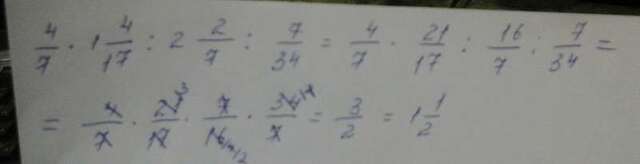 4/7 · 1 4/17 : 2 2/7 : 7/34 = 4/7 · 21/17 : 16/7 : 7/34 =
= 4/7 · 21/17 · 7/16 · 34/7 = 3/2 = 1 1/2